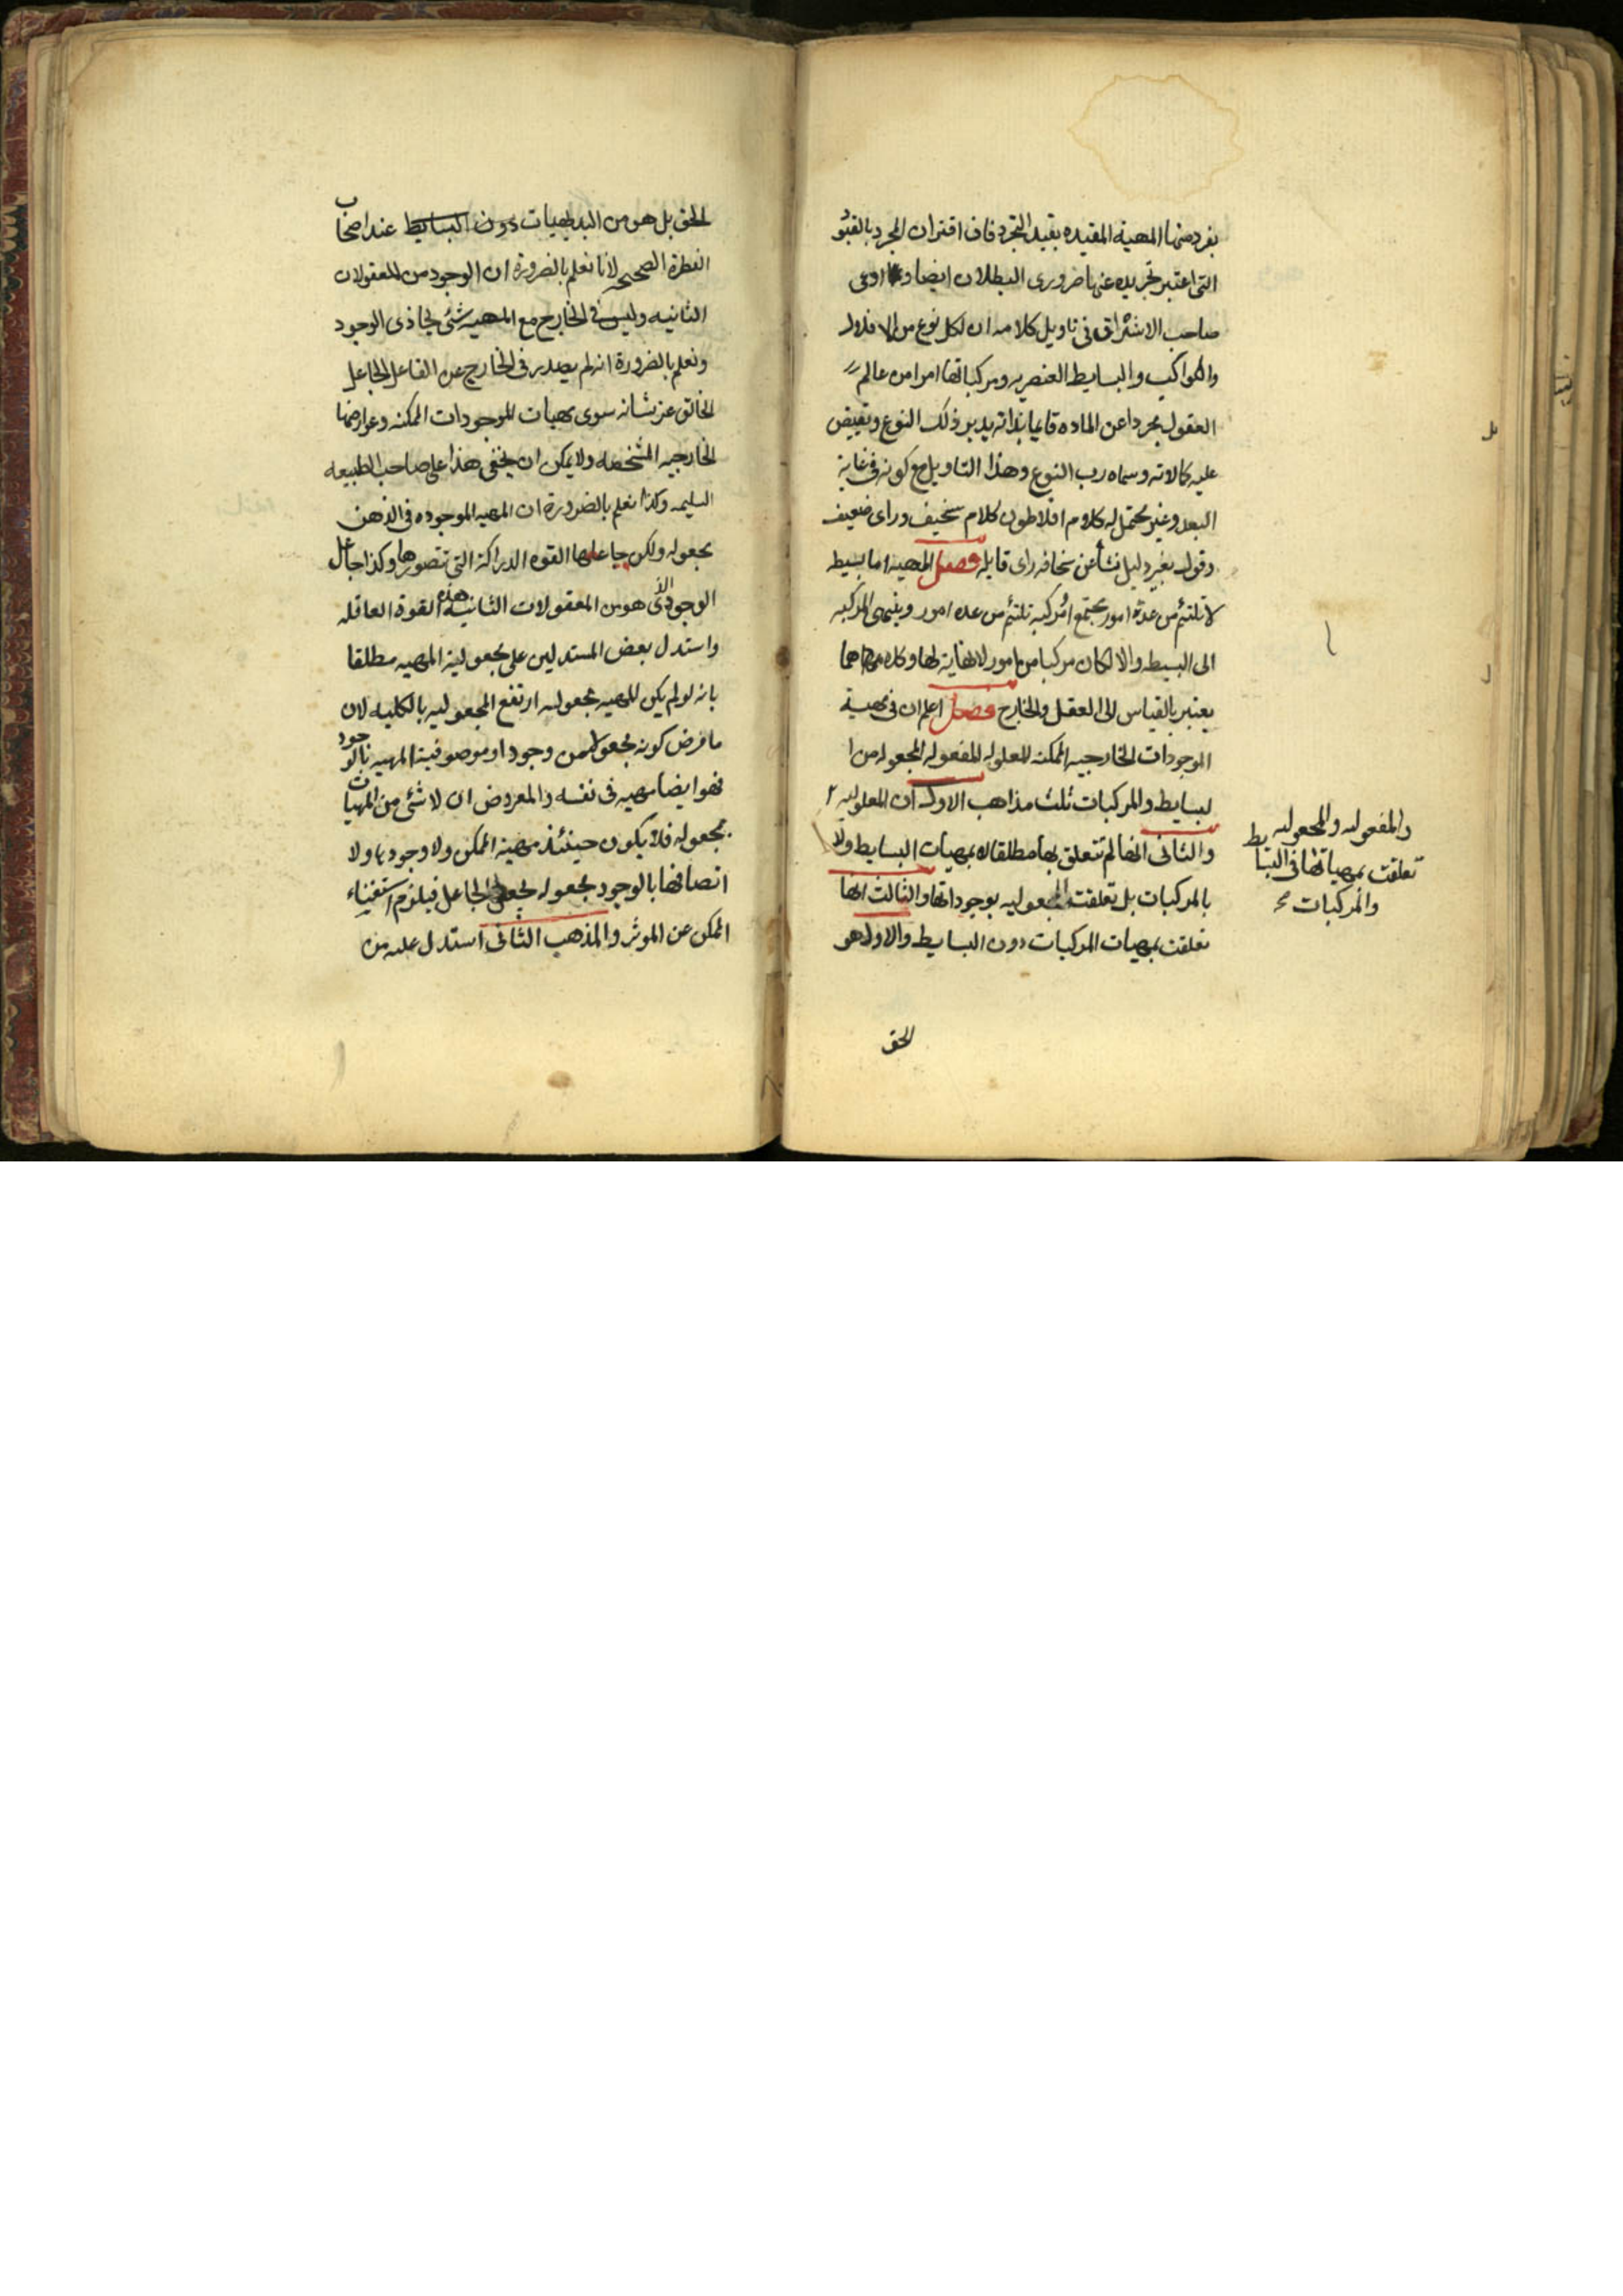 بفرد منها المهية المقيده بقيد التجرد فان اقتران المجرد بالقيود
التى اعتبر تجريده عنها ضرورى البطلان ايضا و اوعى
صاحب الاشراق فى تاويل كلامه ان لكل نوع من الافلاك
والكواكب والبسايط العنصريه ومركباتها امرا من عالم
العقول مجردا عن الماده قايما بذاته يدبر ذلك النوع ويفيض
عليه كالاته وسماه رب النوع وهذا التاويل مع كونه فى غاية
البعد وغير محتمل له كلام افلاطون كلام سخيف وراى ضعيف
وقول بغير دليل نشأ عن سخافه راى قايله فصل المهيه اما بسيطه
لا تلتئم من عدة امور تجتمع او مركبه تلتئم من عده امور وينتهى المركبه
الى البسيطه والا لكان مركبا من امور لا نهاية لها وكلاهما
يعتبر بالقياس الى العقل والخارج فصل اعلم ان فى مهية
الموجودات الخارجيه الممكنه المعلوله المفعوله المجعوله من ا
لبسايط والمركبات ثلث مذاهب الاول ان المعلوليه
والثانى انها لم تتعلق بها مطلقا لا بمهيات البسايط ولا
بالمركبات بل تعلقت المجعوليه بوجوداتها والثالث انها
تعلقت بمهيات المركبات دون البسايط والاول هو
الحق
والمفعوليه والمجعوليه
تعلقت بمهياتها فى البسايط
والمركبات
الحق بل هو من البديهيات دون البسايط عند اصحاب
الفطرة الصحيحه لانا نعلم بالضرورة ان الوجود من المعقولات
الثانيه وليس فى الخارج مع المهيه شئ يحاذى الوجود
ونعلم بالضرورة انه لم يصدر فى الخارج عن الفاعل الجاعل
الخالق عز شانه سوى مهيات الموجودات الممكنه وعوارضها
الخارجيه المشخصه ولا يمكن ان يخفى هذا على صاحب الطبيعه
السليمه وكذا نعلم بالضرورة ان المهيه الموجوده فى الذهن
مجعوله ولكن جاعلها القوه الدراكة التى تتصورها وكذا جاعل
الوجود الذى هو من المعقولات الثانيه هذه القوة العاقله
واستدل بعض المستدلين على مجعولية المهيه مطلقا
بانه لو لم يكن المهيه مجعوله ارتفع المجعوليه بالكليه لان
ما فرض كونه مجعولا من وجود او موصوفية المهيه بالوجود
فهو ايضا مهيه فى نفسه والمفروض ان لا شئ من المهيات
بمجعوله فلا يكون حينئذ مهية الممكن ولا وجودها ولا
اتصافها بالوجود مجعوله بجعل الجاعل فيلزم استغناء
الممكن عن الموثر والمذهب الثانى استدل عليه من